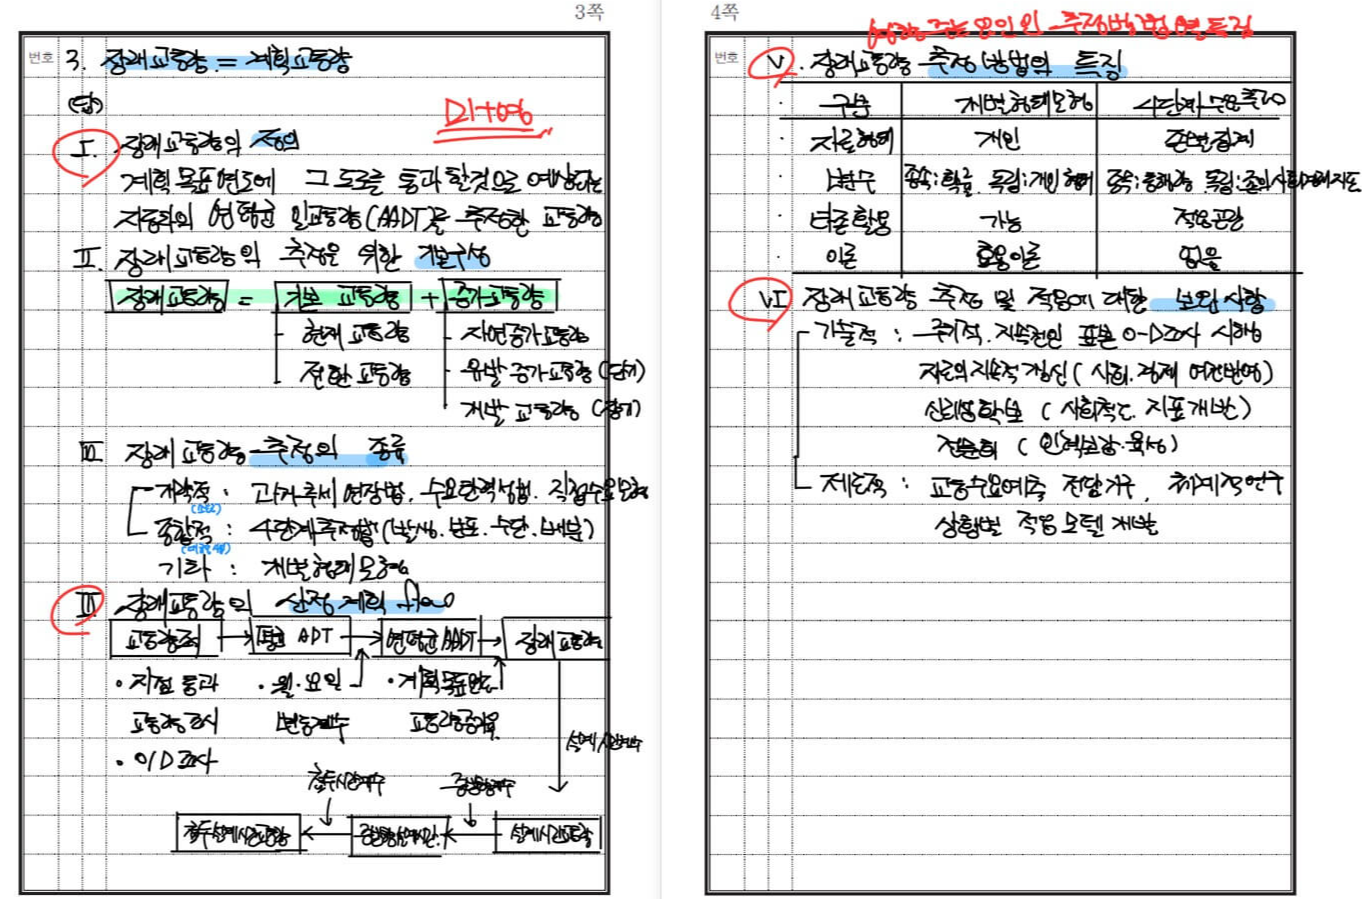 3쪽
번호 3. 장래교통량 = 계획교통량
(답)
I. 장래교통량의 정의
계획 목표년도에 그 도로를 통과 할것으로 예상되는
자동차의 연평균 일교통량(AADT)을 추정한 교통량
II. 장래교통량의 추정을 위한 기본구성
장래교통량 = 기본 교통량 + 증가교통량
현재 교통량 자연증가교통량
전환 교통량 유발 증가교통량 (단기)
개발 교통량 (장기)
III 장래교통량 추정의 종류
개략적 : 과거추세 연장법, 수요탄력성법. 직접수요모형
종합적 : 4단계추정법(발생.분포.수단.배분)
기타 : 개별형태모형
장래교통량의 산정 계획 flow
ADT 연평균 AADT 장래교통량
• 지점 통과 • 월.요일 • 계획목표년도
교통량조사 변동계수 교통량증가율
• O/D 조사
설계시간계수
첨두시간계수 중방향계수
설계시간교통량
4쪽
추정방법별 특징
번호 V. 장래교통량 추정방법의 특징
구분 개별형태모형 4단계수요추정
자료형태 개인 존별집계
변수 종속:확률 독립:개인형태 종속:통행량 독립:존의사회경제지표
타존활용 가능 적용곤란
이론 효용이론 없음
VI 장래교통량 추정 및 적용에 대한 보완사항
기술적 : 주기적.지속적인 표본 O-D조사 시행
자료의지속적갱신( 사회.경제 여건반영)
신뢰성확보 ( 사회적 지표개발)
전문화 ( 인력보강.육성)
제도적 : 교통수요예측 전담기구, 체계적연구
상황별 적용모델 개발